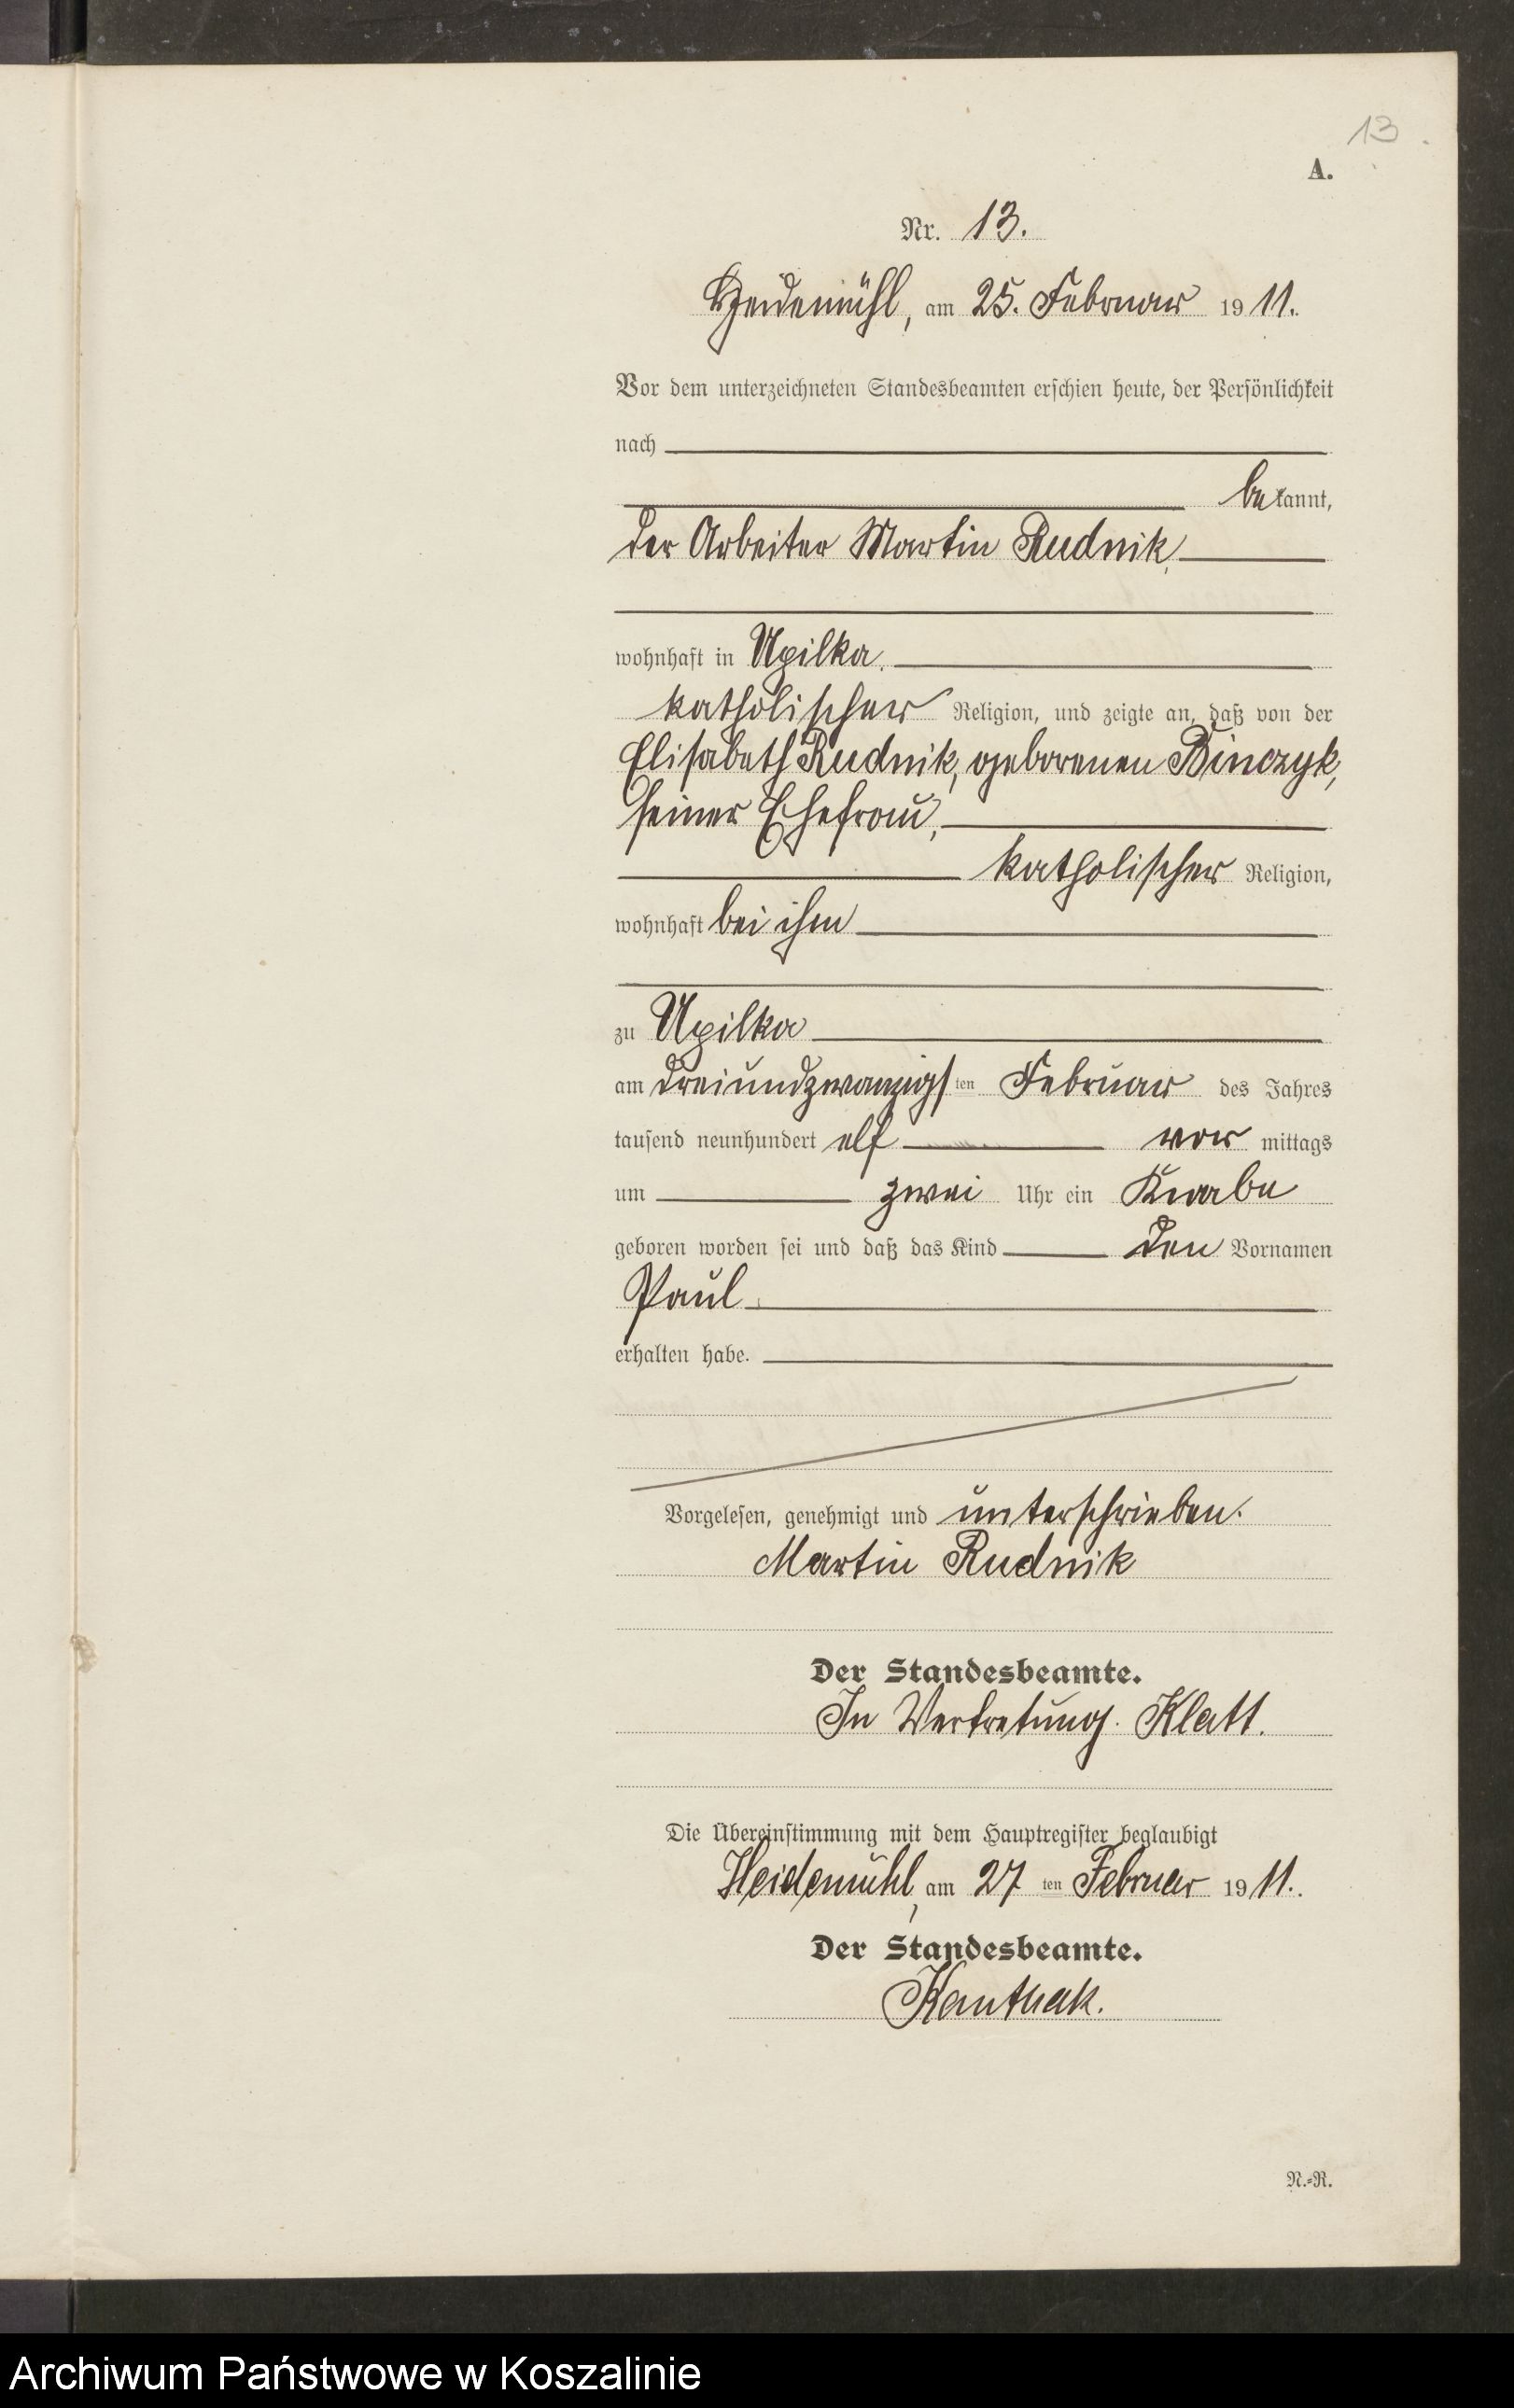 13.
A.
Nr. 13.
Heidemühl, am 25. Februar 1911.
Vor dem unterzeichneten Standesbeamten erschien heute, der Persönlichkeit
nach
bekannt,
der Arbeiter Martin Rudnik,
wohnhaft in Upilka,
katholischer Religion, und zeigte an, daß von der
Elisabeth Rudnik, geborenen Binczyk,
seiner Ehefrau,
katholischer Religion,
wohnhaft bei ihm
zu Upilka
am dreiundzwanzigsten Februar des Jahres
tausend neunhundert elf vor mittags
um zwei Uhr ein Knabe
geboren worden sei und daß das Kind den Vornamen
Paul
erhalten habe.
Vorgelesen, genehmigt und unterschrieben.
Martin Rudnik
Der Standesbeamte.
In Vertretung. Klatt.
Die Übereinstimmung mit dem Hauptregister beglaubigt
Heidemühl, am 27 ten Februar 1911.
Der Standesbeamte.
Kanthak.
N.-R.
Archiwum Państwowe w Koszalinie